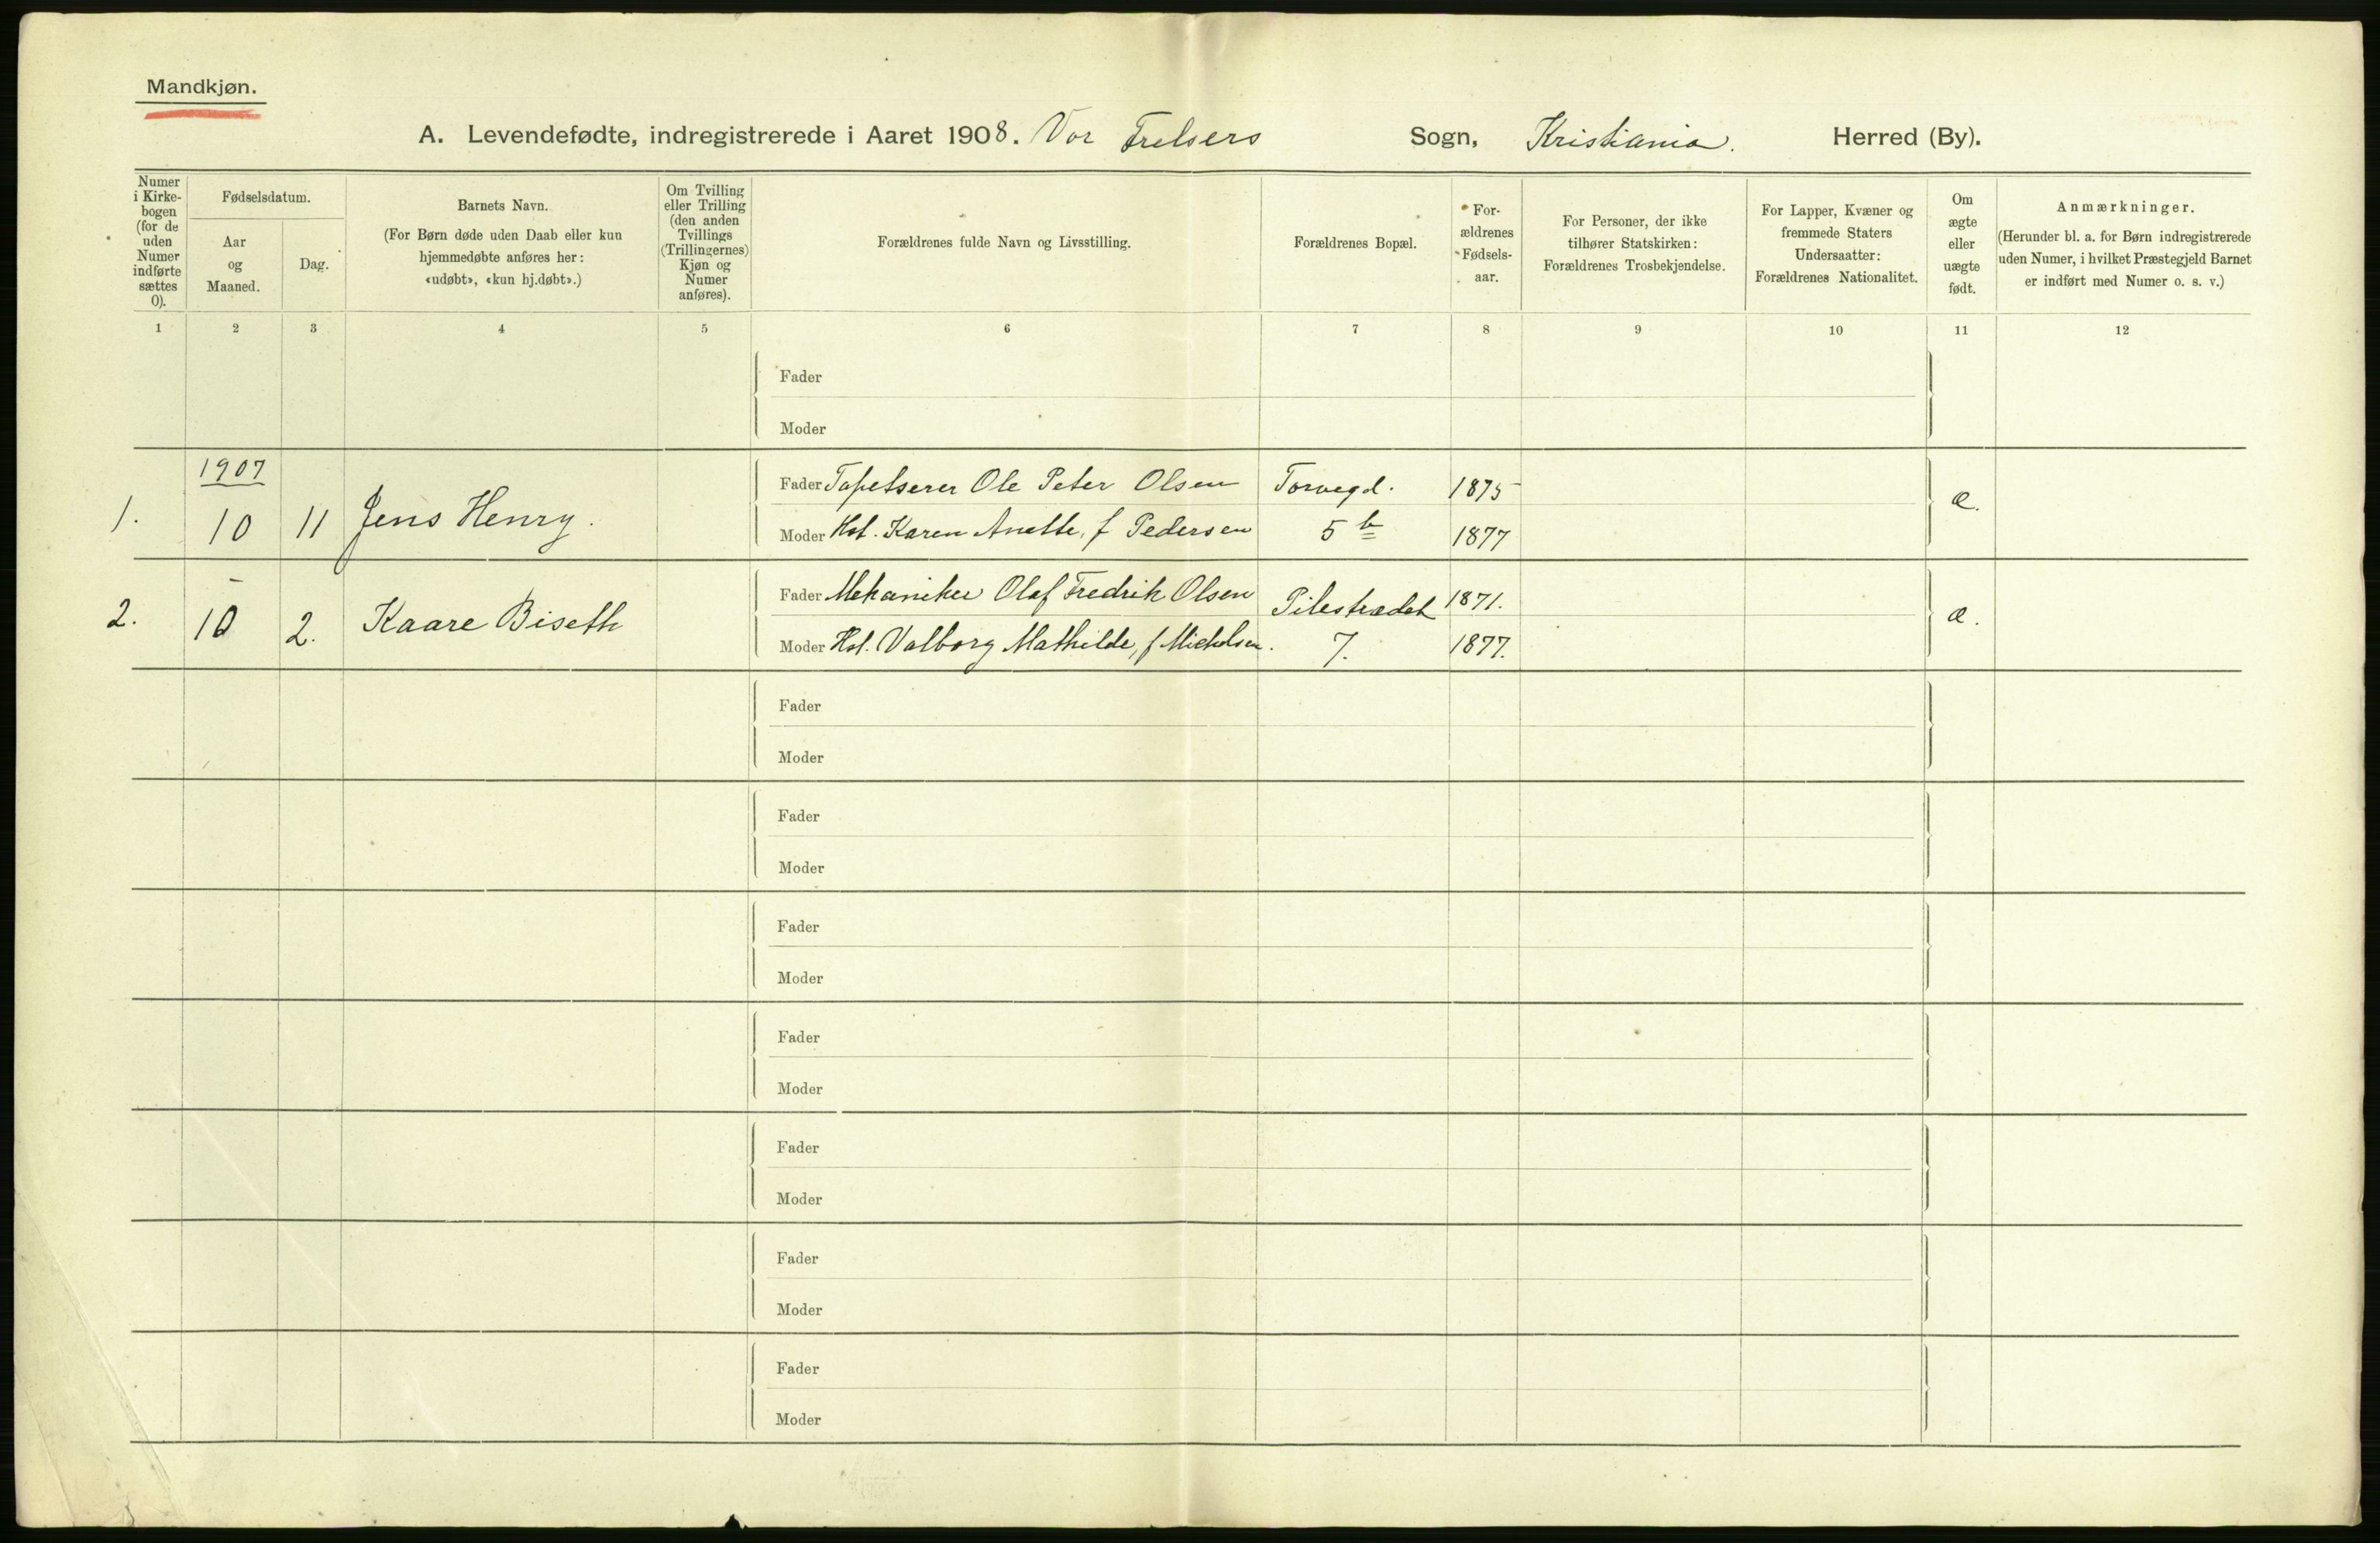 Mandkjøn.
A. Levendefødte, indregistrerede i Aaret 1908. Vor Frelsers Sogn, Kristiania. Herred (By).
Numer
i Kirke-
bogen
(for de
uden
Numer
indførte
sættes
0).
Fødselsdatum.
Aar
og
Maaned.
Dag.
Barnets Navn.
(For Børn døde uden Daab eller kun
hjemmedøbte anføres her:
«udøbt», «kun hj.døbt».)
Om Tvilling
eller Trilling
(den anden
Tvillings
(Trillingernes)
Kjøn og
Numer
anføres).
Forældrenes fulde Navn og Livsstilling.
Forældrenes Bopæl.
For-
ældrenes
Fødsels-
aar.
For Personer, der ikke
tilhører Statskirken:
Forældrenes Trosbekjendelse.
For Lapper, Kvæner og
fremmede Staters
Undersaatter:
Forældrenes Nationalitet.
Om
ægte
eller
uægte
født.
Anmærkninger.
(Herunder bl. a. for Børn indregistrerede
uden Numer, i hvilket Præstegjeld Barnet
er indført med Numer o. s. v.)
1 2 3 4 5 6 7 8 9 10 11 12
Fader
Moder
1907
1. 10 11 Jens Henry.
Fader Tapetserer Ole Peter Olsen Torvegd. 1875
Moder Hst. Karen Anette, f Pedersen 5 b 1877
æ.
2. 10 2. Kaare Biseth
Fader Mekaniker Olaf Fredrik Olsen Pilestrædet 1871.
Moder Hst. Valborg Mathilde, f Michelsen. 7. 1877.
æ.
Fader
Moder
Fader
Moder
Fader
Moder
Fader
Moder
Fader
Moder
Fader
Moder
Fader
Moder